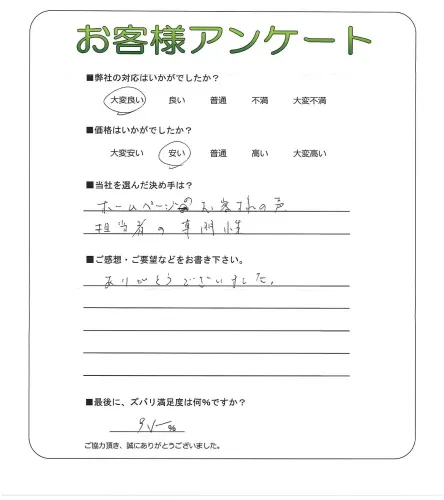 お客様アンケート
■弊社の対応はいかがでしたか？
大変良い 良い 普通 不満 大変不満
■価格はいかがでしたか？
大変安い 安い 普通 高い 大変高い
■当社を選んだ決め手は？
ホームページのお客様の声
担当者の専門性
■ご感想・ご要望などをお書き下さい。
ありがとうございました。
■最後に、ズバリ満足度は何%ですか？
%
ご協力頂き、誠にありがとうございました。